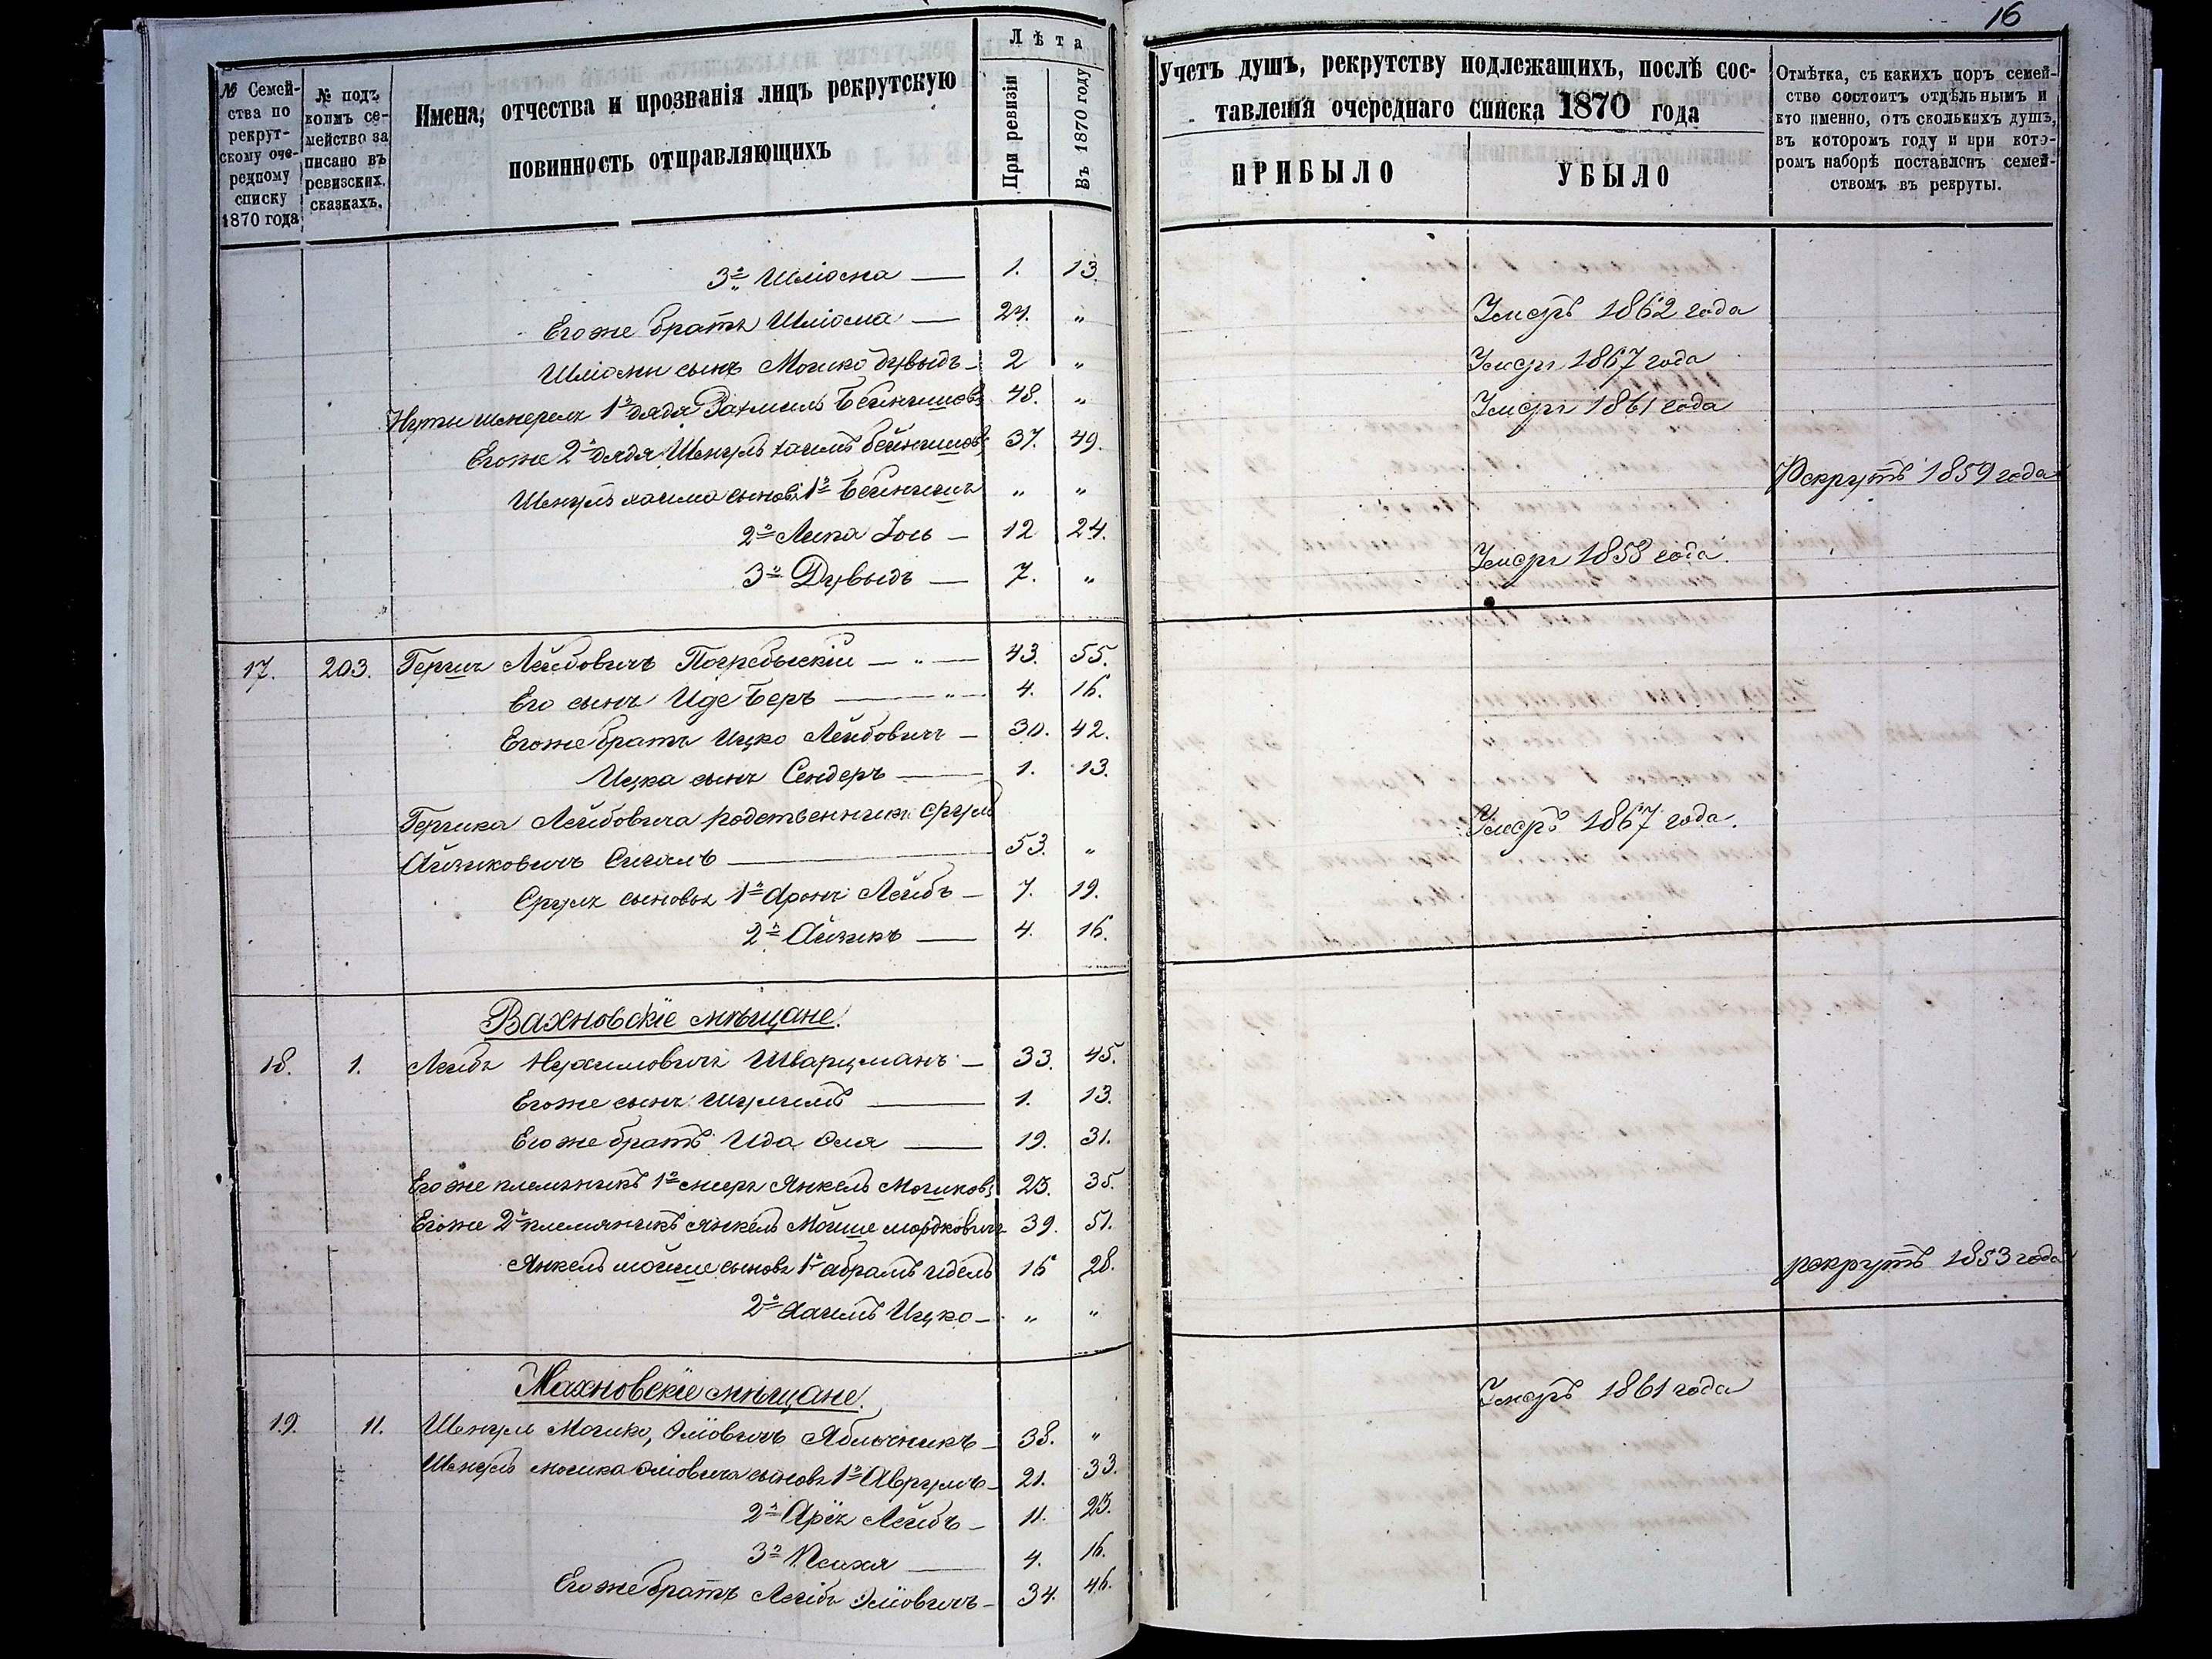 16
№ Семей-
ства по
рекрут-
скому оче-
редному
списку
1870 года
№ подъ
коимъ се-
мейство за
писано въ
ревизских.
сказкахъ.
Имена, отчества и прозванія лицъ рекрутскую
повинность отправляющихъ
Лѣта
При ревизіи
Въ 1870 году
Учетъ душъ, рекрутству подлежащихъ, послѣ сос-
тавленія очереднаго списка 1870 года
ПРИБЫЛО
УБЫЛО
Отмѣтка, съ какихъ поръ семей-
ство состоитъ отдѣльнымъ и
кто именно, отъ сколькихъ душъ,
въ которомъ году и при кото-
ромъ наборѣ поставленъ семей-
ствомъ въ рекруты.
3й Шліома — 1. 13.
Его же братъ Шліома — 24. " Умеръ 1862 года
Шліомы сынъ Мошко Дувыдъ — 2 " Умеръ 1867 года
1й дядя Захмиль Бейнишовъ 48. " Умеръ 1861 года
Его же 2й дядя Шендулъ Хаимъ Бейнишовъ 37. 49.
Хаима сыновья 1й Бейнишъ " " Рекрутъ 1859 года
2й Липа Іось — 12 24.
3й Дувыдъ — 7. " Умеръ 1858 года
17. 203. Гершъ Лейбовичъ Погребыскій — " — 43. 55.
Его сынъ Иде Беръ — " — 4. 16.
Его же братъ Ицко Лейбовичъ — 30. 42.
Ицка сынъ Сендеръ — 1. 13.
Гершка Лейбовича родственникъ Сруль
Айзиковичъ Сигалъ — 53. " Умеръ 1867 года.
Сруля сыновья 1й Аронъ Лейбъ — 7. 19.
2й Айзикъ — 4. 16.
Вахновскіе мѣщане.
18. 1. Лейбъ Нухимовичъ Шварцманъ — 33. 45.
Его же сынъ Шулимъ — 1. 13.
Его же братъ Ида Эля — 19. 31.
Его же племянникъ 1й Смеръ Янкель Мошковъ 23. 35.
Его же 2й племянникъ Янкель Мойше Мордковичъ 39. 51.
Янкель Мойше сыновья 1й Абрамъ Идель 16 28.
2й Хаимъ Ицко — " " рекрутъ 1853 года
Махновскіе мѣщане.
19. 11. Мошко, Эліовичъ Яблочникъ — 38. " Умеръ 1861 года
Мошка Эліовича сыновья 1й Аврумъ — 21. 33.
2й Аріе Лейбъ — 11. 23.
3й Псахя — 4. 16.
Его же братъ Лейба Эліовичъ — 34. 46.